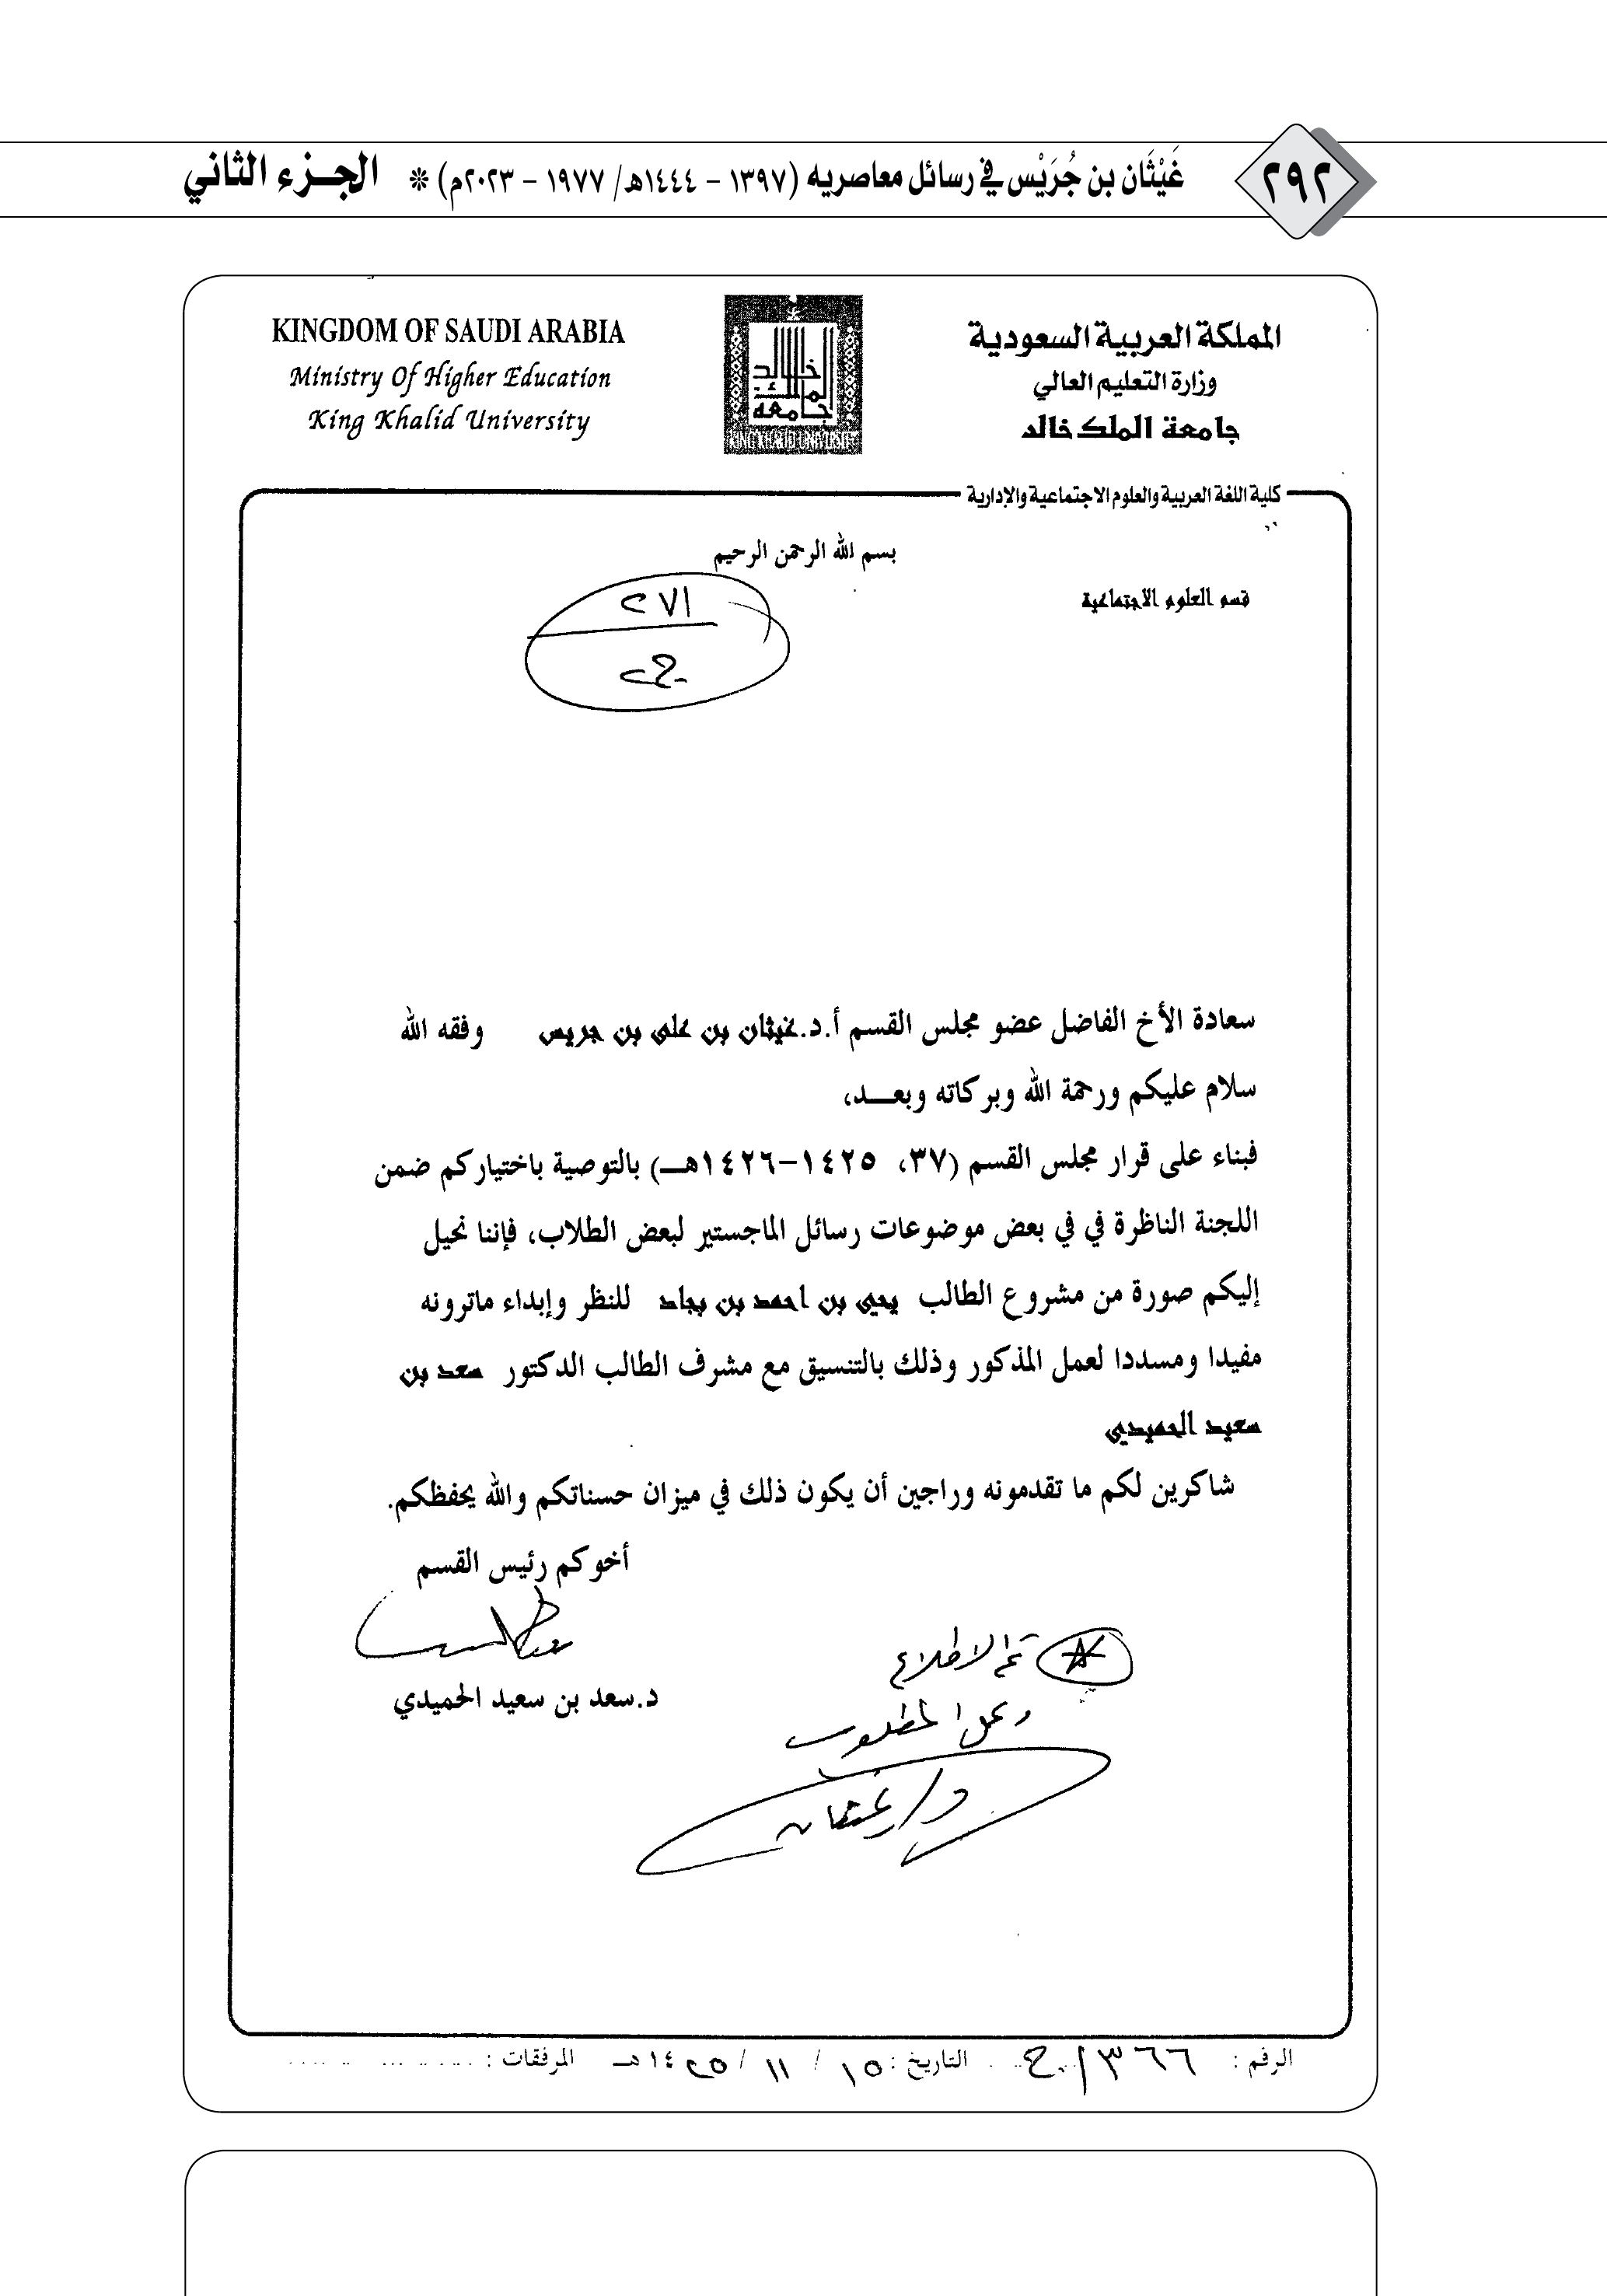 ٢٩٢ غَيْثَان بن جُرَيْس في رسائل معاصريه (١٣٩٧ - ١٤٤٤هـ/ ١٩٧٧ - ٢٠٢٣م) * الجـزء الثاني
المملكة العربية السعودية
وزارة التعليم العالي
جامعة الملك خالد
خالد
الملك
جامعة
KING KHALID UNIVERSITY
KINGDOM OF SAUDI ARABIA
Ministry Of Higher Education
King Khalid University
كلية اللغة العربية والعلوم الاجتماعية والإدارية
بسم الله الرحمن الرحيم
قسم العلوم الاجتماعية
٢٧١
سعادة الأخ الفاضل عضو مجلس القسم أ.د.غيثان بن على بن جريس وفقه الله
سلام عليكم ورحمة الله وبركاته وبعـــد،
فبناء على قرار مجلس القسم (٣٧، ١٤٢٥-١٤٢٦هــ) بالتوصية باختياركم ضمن
اللجنة الناظرة في في بعض موضوعات رسائل الماجستير لبعض الطلاب، فإننا نحيل
إليكم صورة من مشروع الطالب يحيى بن احمد بن بجاد للنظر وإبداء ماترونه
مفيدا ومسددا لعمل المذكور وذلك بالتنسيق مع مشرف الطالب الدكتور سعد بن
سعيد الحميدي
شاكرين لكم ما تقدمونه وراجين أن يكون ذلك في ميزان حسناتكم والله يحفظكم.
أخوكم رئيس القسم
د.سعد بن سعيد الحميدي
تم الاطلاع
وعمل المطلوب
د/ غيثان
الرقم : ٣٦٦/ح التاريخ : ١٥ / ١١ / ١٤٢٥ هــ المرفقات :